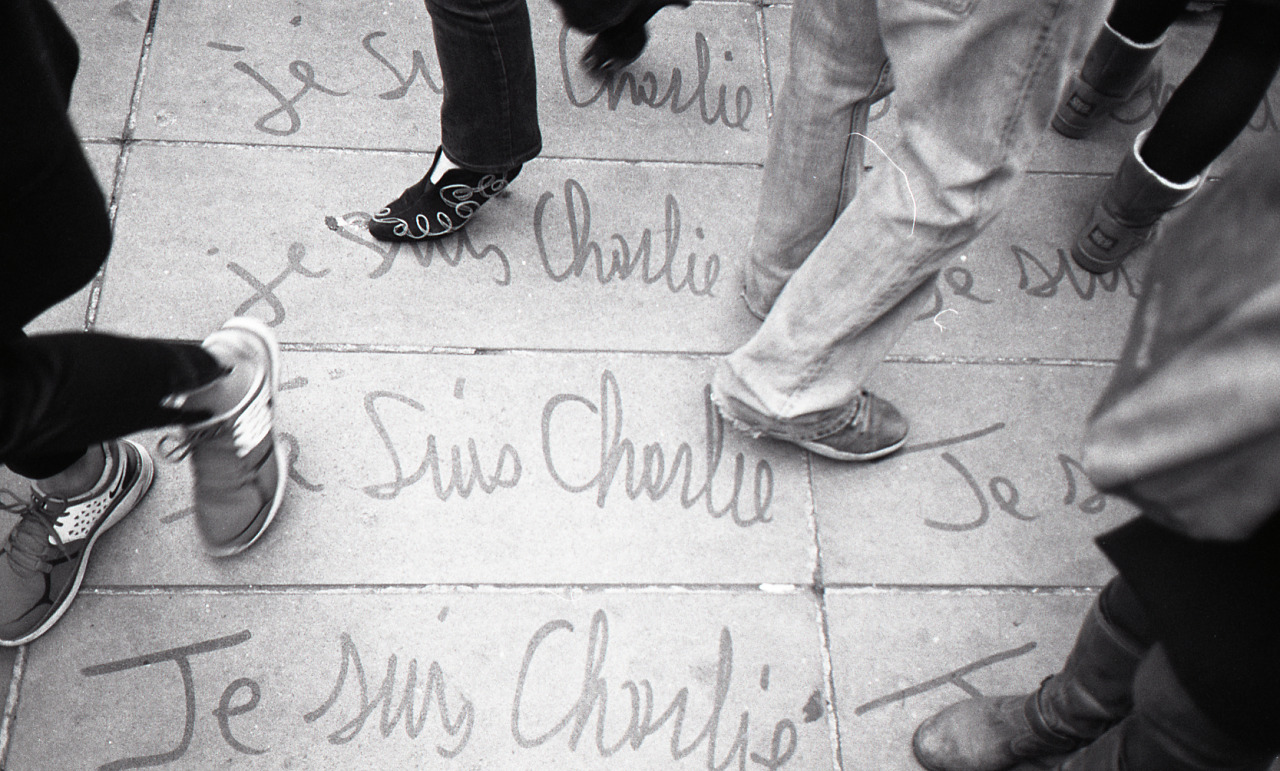 je Su Charlie
je suis Charlie Je suis
e Suis Charlie Je s
Je suis Charlie J